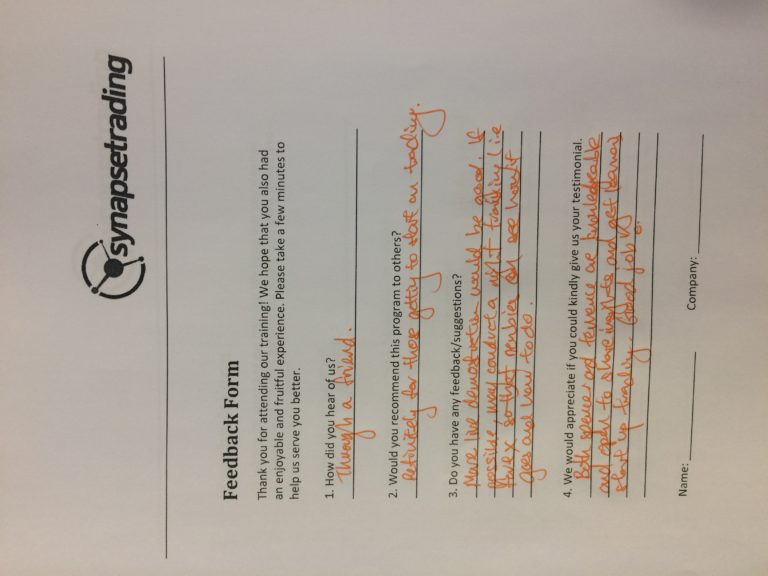 synapsetrading
Feedback Form
Thank you for attending our training! We hope that you also had
an enjoyable and fruitful experience. Please take a few minutes to
help us serve you better.
1. How did you hear of us?
Through a friend.
2. Would you recommend this program to others?
Definitely for those getting to start on trading.
3. Do you have any feedback/suggestions?
More live demonstration would be good. If
possible, may conduct a night trading (ie
forex so that newbies can see how it
goes and how to do.
4. We would appreciate if you could kindly give us your testimonial.
Both spencer and terence are knowledgeable
and open to share insights and get
start up trading. Good job
Name:
Company: